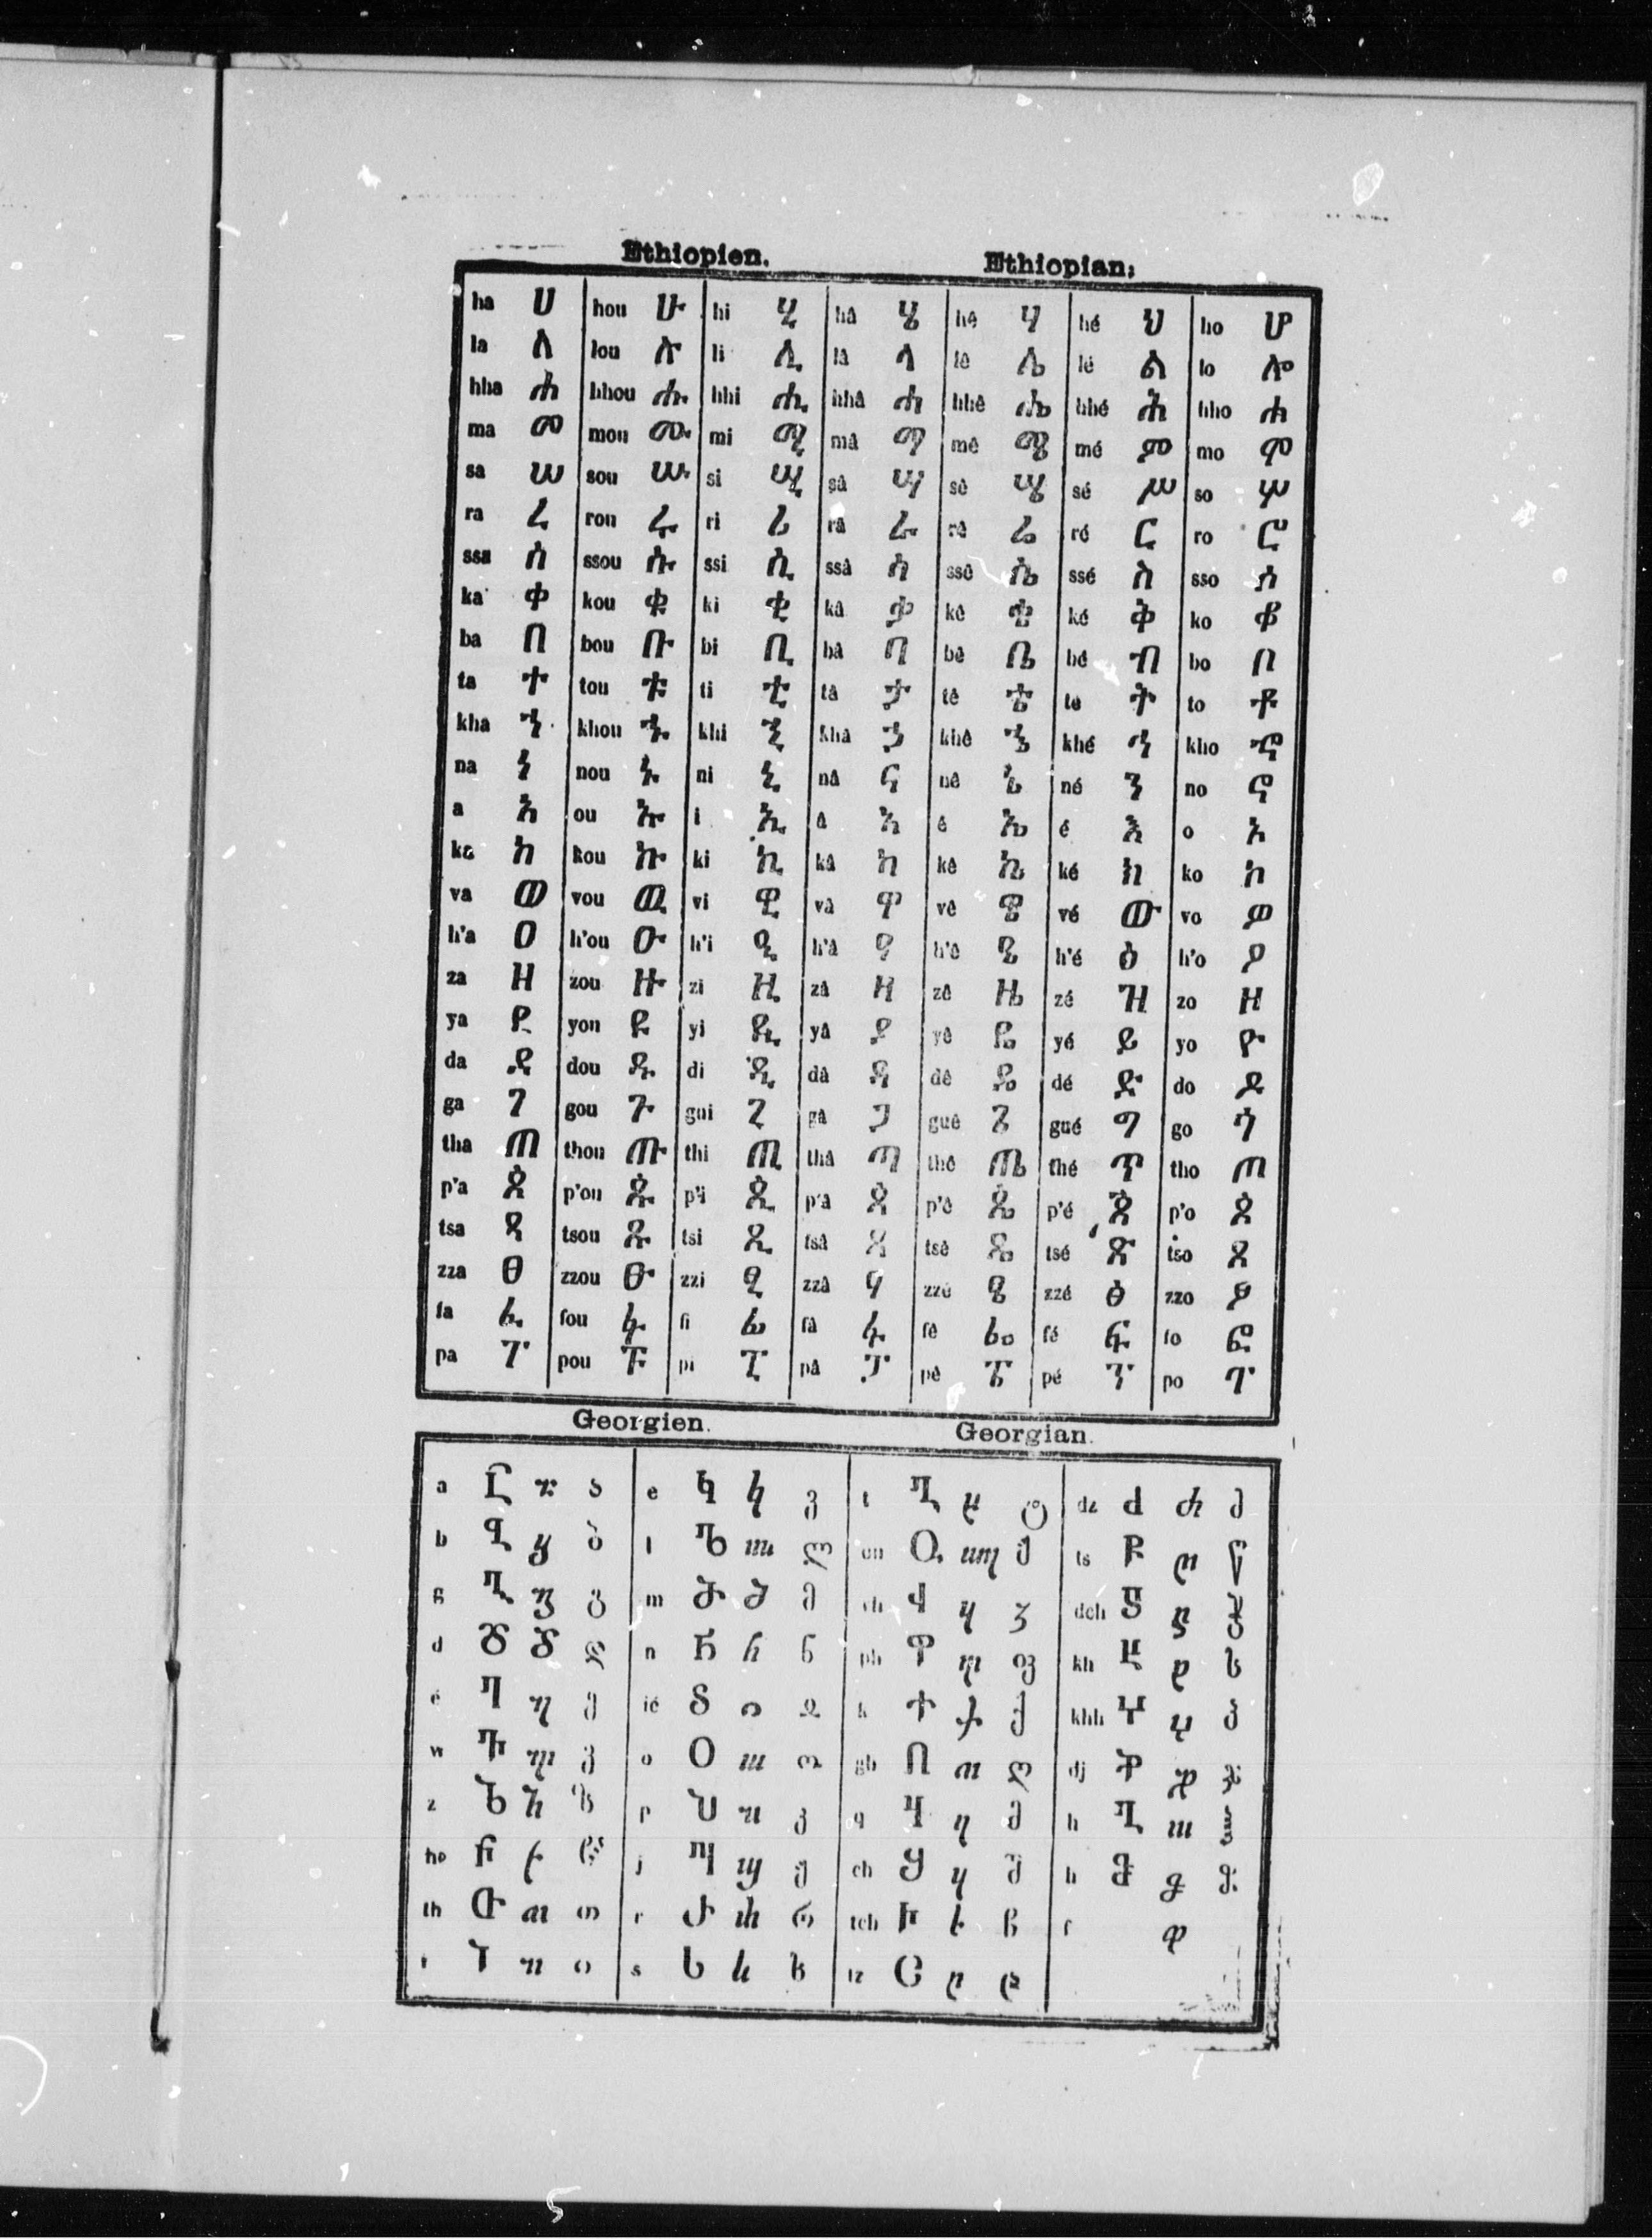 Ethiopien. Ethiopian.
ha ሀ hou ሁ hi ሂ hâ ሄ hê ሃ hé ህ ho ሆ
la ለ lou ሉ li ሊ lâ ላ lê ሌ lé ል lo ሎ
hha ሐ hhou ሑ hhi ሒ hhâ ሓ hhê ሔ hhé ሕ hho ሖ
ma መ mou ሙ mi ሚ mâ ማ mê ሜ mé ም mo ሞ
sa ሠ sou ሡ si ሢ sâ ሣ sê ሤ sé ሥ so ሦ
ra ረ rou ሩ ri ሪ râ ራ rê ሬ ré ር ro ሮ
ssa ሰ ssou ሱ ssi ሲ ssâ ሳ ssê ሴ ssé ስ sso ሶ
ka ቀ kou ቁ ki ቂ kâ ቃ kê ቄ ké ቅ ko ቆ
ba በ bou ቡ bi ቢ bâ ባ bê ቤ bé ብ bo ቦ
ta ተ tou ቱ ti ቲ tâ ታ tê ቴ té ት to ቶ
kha ኀ khou ኁ khi ኂ khâ ኃ khê ኄ khé ኅ kho ኆ
na ነ nou ኑ ni ኒ nâ ና nê ኔ né ን no ኖ
a አ ou ኡ i ኢ â ኣ ê ኤ é እ o ኦ
ka ከ kou ኩ ki ኪ kâ ካ kê ኬ ké ክ ko ኮ
va ወ vou ዉ vi ዊ vâ ዋ vê ዌ vé ው vo ዎ
h'a ዐ h'ou ዑ h'i ዒ h'â ዓ h'ê ዔ h'é ዕ h'o ዖ
za ዘ zou ዙ zi ዚ zâ ዛ zê ዜ zé ዝ zo ዞ
ya የ you ዩ yi ዪ yâ ያ yê ዬ yé ይ yo ዮ
da ደ dou ዱ di ዲ dâ ዳ dê ዴ dé ድ do ዶ
ga ገ gou ጉ gui ጊ gâ ጋ guê ጌ gué ግ go ጎ
tha ጠ thou ጡ thi ጢ thâ ጣ thê ጤ thé ጥ tho ጦ
p'a ጰ p'ou ጱ p'i ጲ p'â ጳ p'ê ጴ p'é ጵ p'o ጶ
tsa ጸ tsou ጹ tsi ጺ tsâ ጻ tsê ጼ tsé ጽ tso ጾ
zza ፀ zzou ፁ zzi ፂ zzâ ፃ zzê ፄ zzé ፅ zzo ፆ
fa ፈ fou ፉ fi ፊ fâ ፋ fê ፌ fé ፍ fo ፎ
pa ፐ pou ፑ pi ፒ pâ ፓ pê ፔ pé ፕ po ፖ
Georgien. Georgian.
a Ⴀ ⴀ ა e Ⴉ ⴉ კ t Ⴒ ⴒ ტ dz Ⴛ ⴛ ძ
b Ⴁ ⴁ ბ l Ⴊ ⴊ ლ ou ts Ⴜ ⴜ წ
g Ⴂ ⴂ გ m Ⴋ ⴋ მ Ⴣ ⴣ ჳ dch Ⴝ ⴝ ჭ
d Ⴃ ⴃ დ n Ⴌ ⴌ ნ ph Ⴔ ⴔ ფ kh Ⴞ ⴞ ხ
é Ⴄ ⴄ ე ié Ⴢ ⴢ ჲ k Ⴕ ⴕ ქ khh Ⴤ ⴤ ჴ
w Ⴅ ⴅ ვ o Ⴍ ⴍ ო gh Ⴖ ⴖ ღ dj Ⴟ ⴟ ჯ
z Ⴆ ⴆ ზ p Ⴎ ⴎ პ q Ⴗ ⴗ ყ h Ⴠ ⴠ ჰ
he Ⴡ ⴡ ჱ j Ⴏ ⴏ ჟ ch Ⴘ ⴘ შ h Ⴥ ⴥ ჵ
th Ⴇ ⴇ თ r Ⴐ ⴐ რ tch Ⴙ ⴙ ჩ f ჶ
i Ⴈ ⴈ ი s Ⴑ ⴑ ს tz Ⴚ ⴚ ც